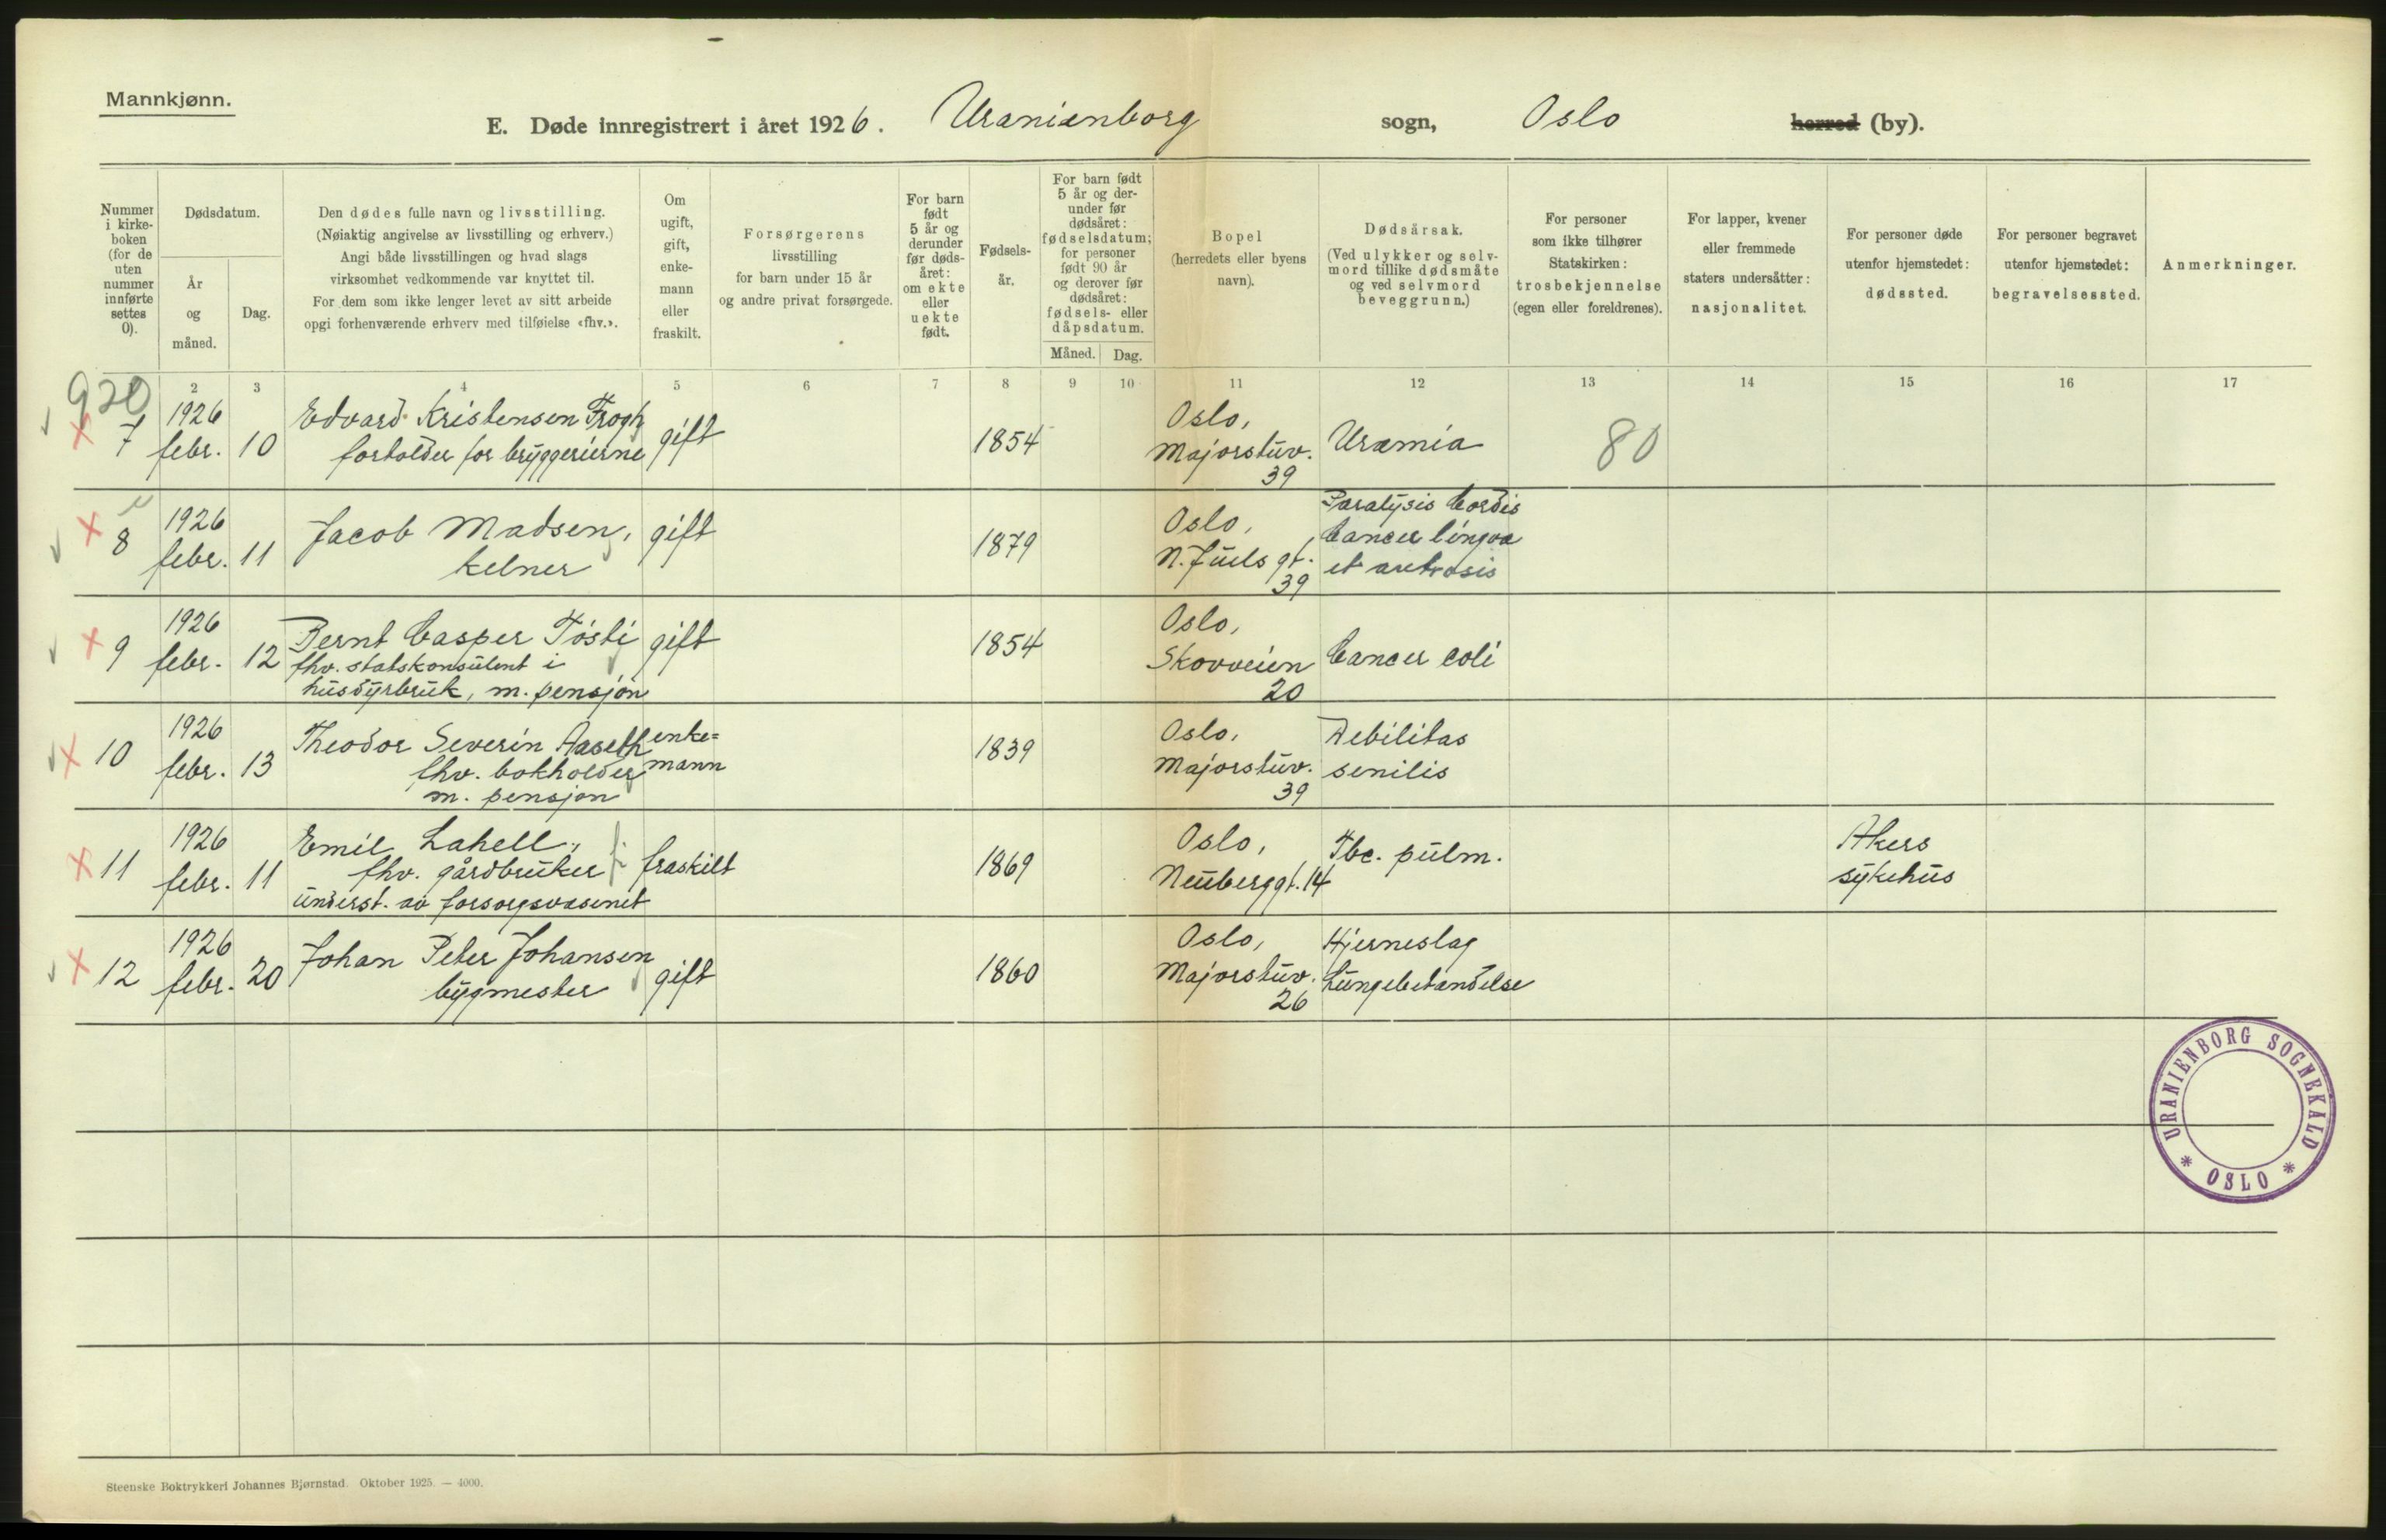 Mannkjønn.
E. Døde innregistrert i året 1926. Uranienborg sogn, Oslo herred (by).
Nummer i kirkeboken (for de uten nummer innførte settes 0).
Dødsdatum.
År og måned.
Dag.
Den dødes fulle navn og livsstilling.
(Nøiaktig angivelse av livsstilling og erhverv.)
Angi både livsstillingen og hvad slags
virksomhet vedkommende var knyttet til.
For dem som ikke lenger levet av sitt arbeide
opgi forhenværende erhverv med tilføielse «fhv.».
Om ugift, gift, enkemann eller fraskilt.
Forsørgerens
livsstilling
for barn under 15 år
og andre privat forsørgede.
For barn født 5 år og derunder før dødsåret: om ekte eller uekte født.
Fødselsår.
For barn født 5 år og derunder før dødsåret: fødselsdatum; for personer født 90 år og derover før dødsåret: fødsels- eller dåpsdatum.
Måned. Dag.
Bopel
(herredets eller byens
navn).
Dødsårsak.
(Ved ulykker og selvmord tillike dødsmåte og ved selvmord beveggrunn.)
For personer
som ikke tilhører
Statskirken:
trosbekjennelse
(egen eller foreldrenes).
For lapper, kvener
eller fremmede
staters undersåtter:
nasjonalitet.
For personer døde
utenfor hjemstedet:
dødssted.
For personer begravet
utenfor hjemstedet:
begravelsessted.
Anmerkninger.
2 3 4 5 6 7 8 9 10 11 12 13 14 15 16 17
920
7 1926 febr. 10 Edvard Kristensen Frogh
forholder for bryggerierne gift 1854 Oslo, Majorstuv. 39 Uræmia 80
8 1926 febr. 11 Jacob Madsen,
kelner gift 1879 Oslo, N. Juels gt. 39 Paralysis Cordis
Cancer lingva
et
9 1926 febr. 12 Bernt Casper Tosti
fhv. statskonsulent i
husdyrbruk, m. pensjon gift 1854 Oslo, Skovveien 20 Cancer coli
10 1926 febr. 13 Theodor Severin Aaseth
fhv. bokholder
m. pensjon enke=
mann 1839 Oslo, Majorstuv. 39 Debilitas
senilis
11 1926 febr. 11 Emil Lahell,
fhv. gårdbruker
underst. av forsorgsvæsenet fraskilt 1869 Oslo, Neuberggt. 14 Tbc. pulm. Akers
sykehus
12 1926 febr. 20 Johan Peter Johansen
bygmester gift 1860 Oslo, Majorstuv. 26 Hjerneslag
Lungebetændelse
URANIENBORG SOGNEKALD * OSLO *
Steenske Boktrykkeri Johannes Bjørnstad. Oktober 1925. — 4000.